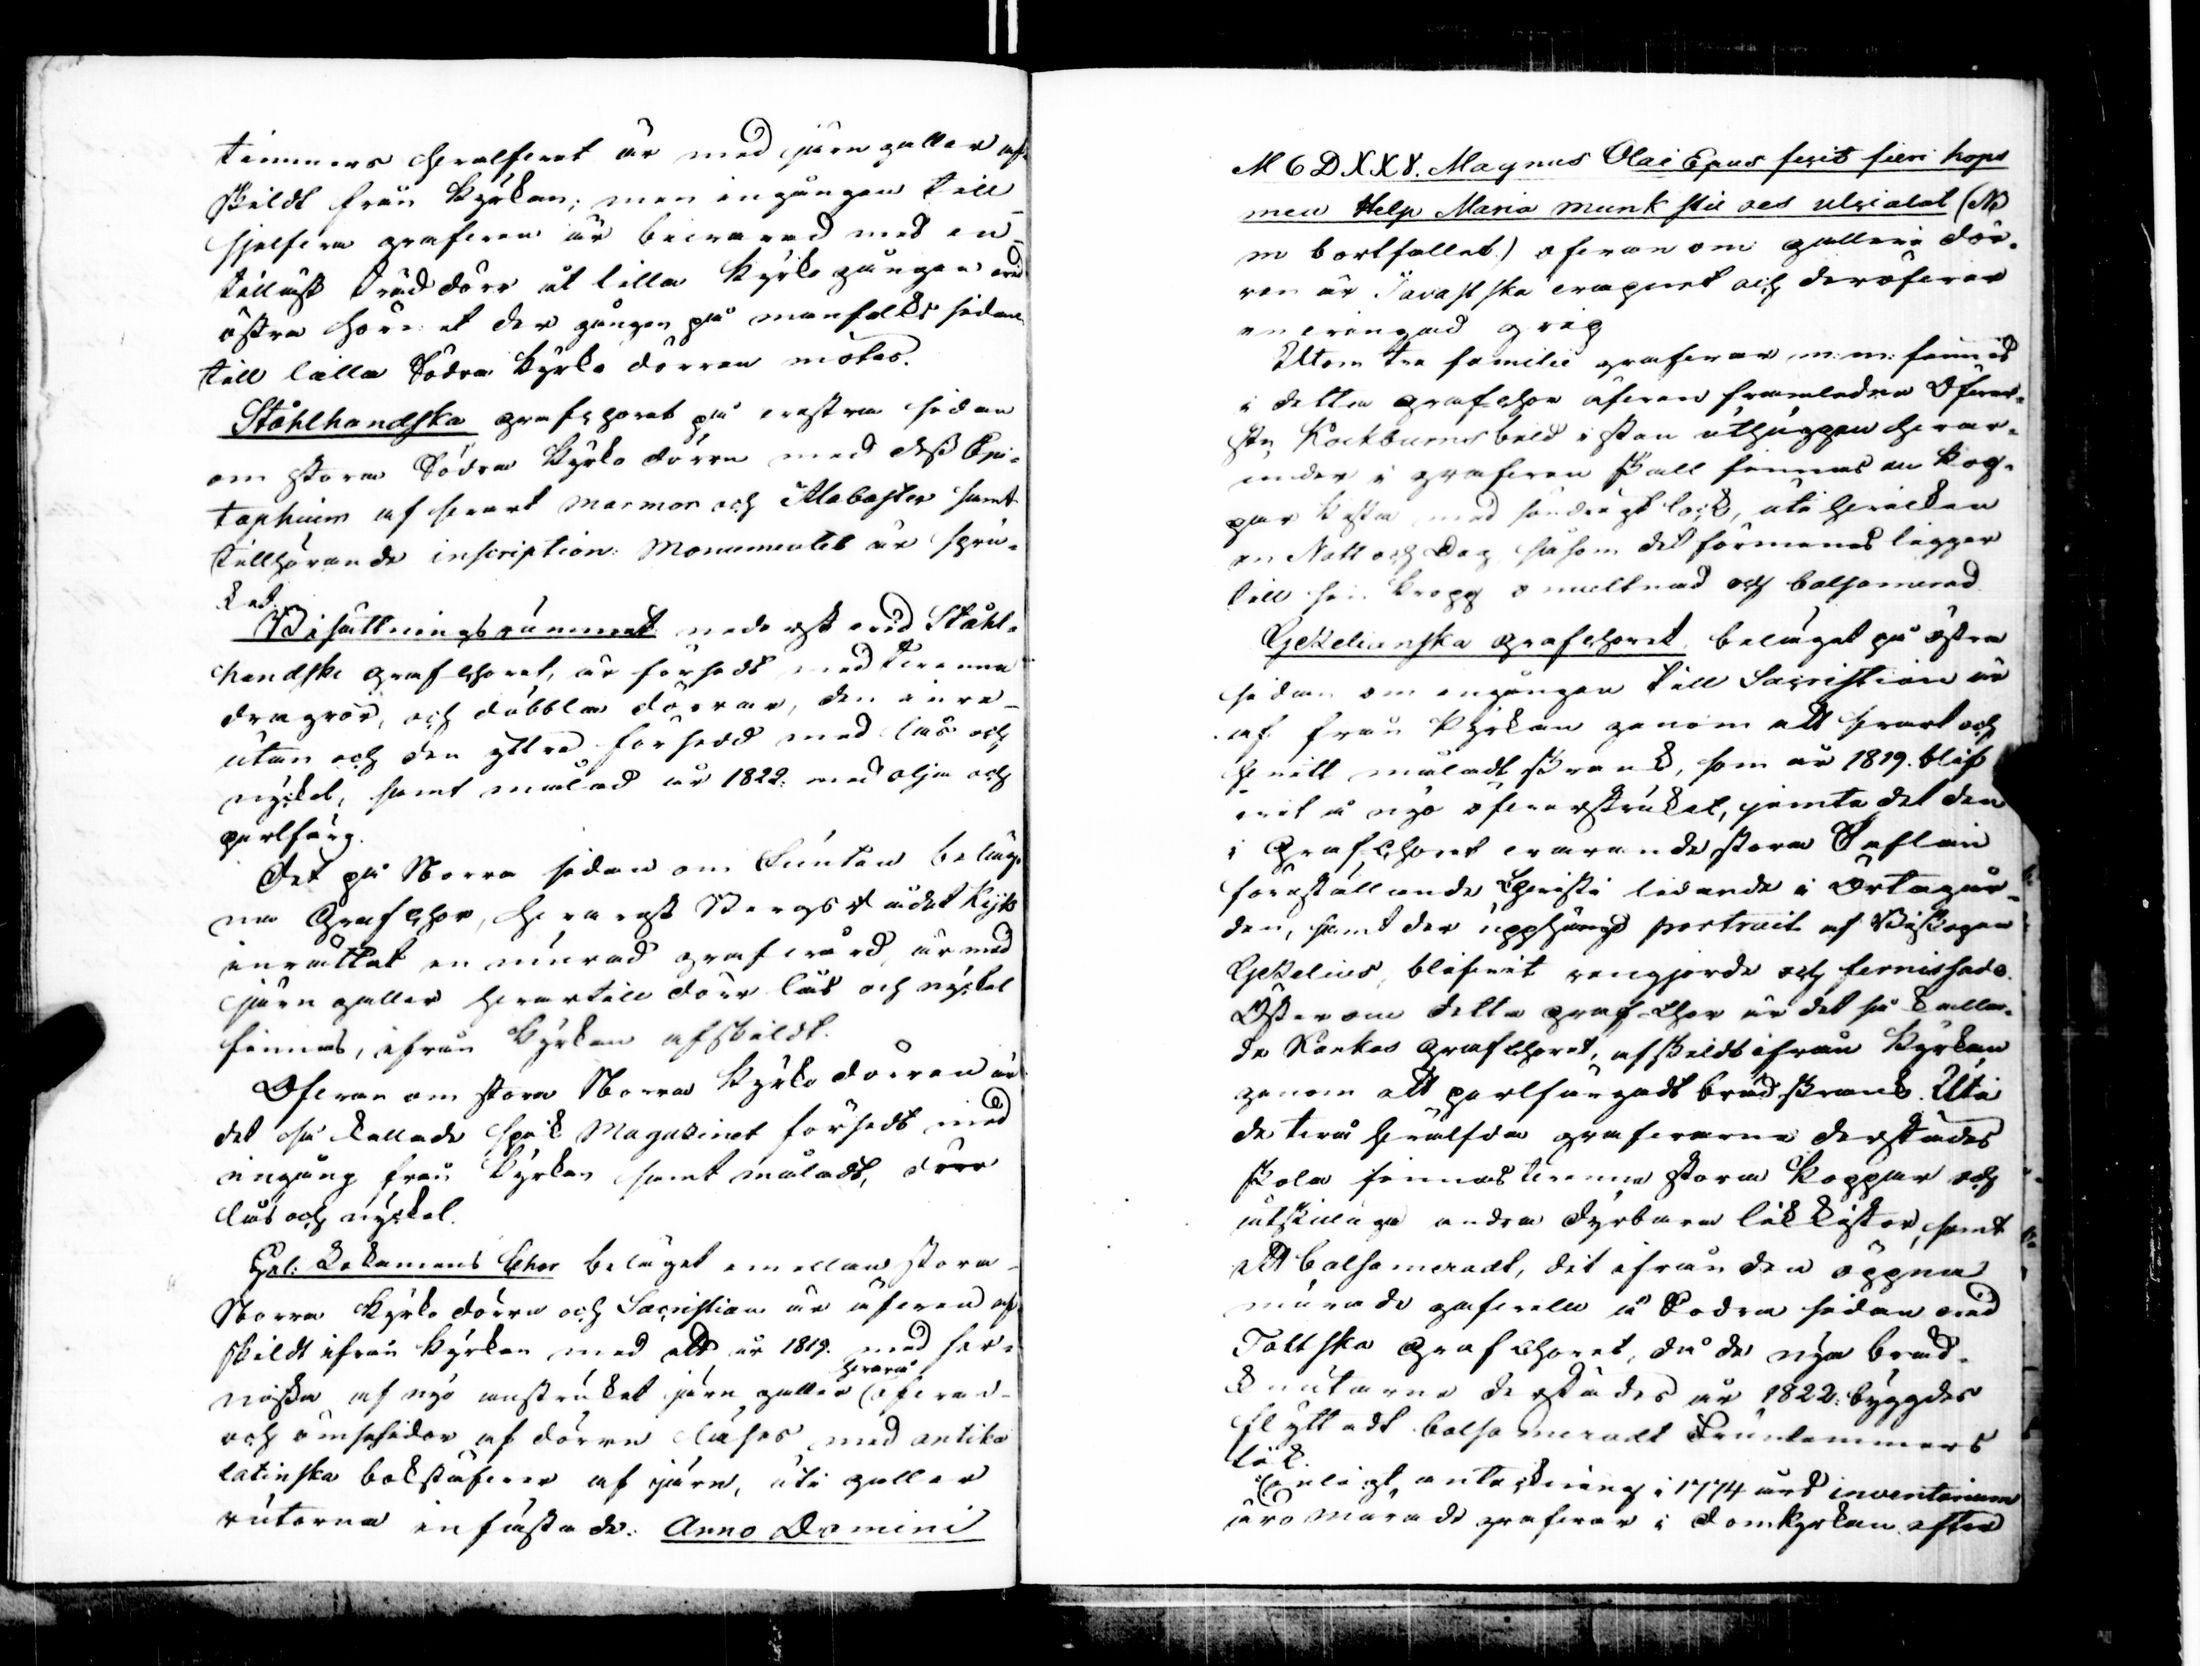 timmers hvalfvet är med järn galler af-
skildt från Kyrkan; men ingången till
sjelfva grafven är bevarad med en
tillåst träd dörr åt lilla Kyrko gången vid
östra hörnet der gången på manfolks sidan
till lilla Södra Kyrko dörren mötes.
Stålhandska grafchoret på vestra sidan
om stora Södra Kyrko dörrn med dess Epi-
taphium af svart marmor och Alabaster samt
tillhörande inscription: Monumentet är sprü-
cket.
Bisättningsrummet nederst vid Stål-
handske grafchoret, är försedt med tvenne
dragrör, och dubbla dörrar, den inre
utan och den yttre försedd med lås och
nyckel, samt målad år 1822: med olja och
perlfärg.
Det på Norra sidan om Funten beläg-
na Grafchor, hvarest Bergsrådet Kijk
inrättat en murad graf vård, är med
järn galler hvartill dörr lås och nyckel
finnas, ifrån Kyrkan afskildt.
Ofvan om stora Norra Kyrko dörren är
det så kallade spik Magazinet försedt med
ingång från Kyrkan samt måladt, dörr
lås och nyckel.
Hel: Lekamens Chor beläget emellan stora
Norra Kyrko dörrn och Sacristian är äfven af-
skildt ifrån Kyrkan med ett år 1819. med fer-
nissa af nyo anstruket järn galler hvarå (ofvan
och ömse sidor af dörrn läses med antika
latinska bokstäfver af järn, uti galler
rutorna infästade: Anno Domini
M CDXXV. Magnus Olai Epus fecit fieri hops
meu Help Maria munk stie oes ulcialat (N
m bortfallet) ofvan om galleri dör-
ren är Tavastska vapnet och deröfver
en vingad grip
Utom tre familie grafvar m: m: finnes
i detta grafchor äfven framledne Öfver-
ste Kockburns bild i sten uthuggen hvar-
under i grafven skall finnas en kop-
par kista med söndrigt lock, uti hvilken
en Natt och Dag såsom det förmenes ligger
till sin kropp omultnad och balsamerad
Gezelianska grafchoret, beläget på östra
sidan om ingången till Sacristian är
af från Kyrkan genom ett svart och
hvitt måladt skrank, som år 1819. blif-
vit å nyo öfverstruket, jemte det den
i Grafchoret varande stora Taflan
föreställande Christi lidande i Örtagår-
den, samt der upphängd portrait af Biskopen
Gezelius, blifvit rengjorde och fernissade.
Öster om detta graf-Chor är det så kalla-
de Kankas Grafchoret, afskildt ifrån Kyrkan
genom ett perlfärgadt bräd skrank. Uti
de två hvälfda grafvarna derstädes
skola finnas tvenne stora Koppar och
åtskilliga andra dyrbara likkistor, samt
Ett balsameradt, dit ifrån den öppna
murade grafven å Södra sidan vid
Tottska Grafchoret, då de nya bräd-
knutarne derstädes år 1822: byggdes
flyttadt balsameradt Fruntimmers
lik.
Enligt anteckning i 1774 års inventarium
äro murade grafvar i Domkyrkan efter